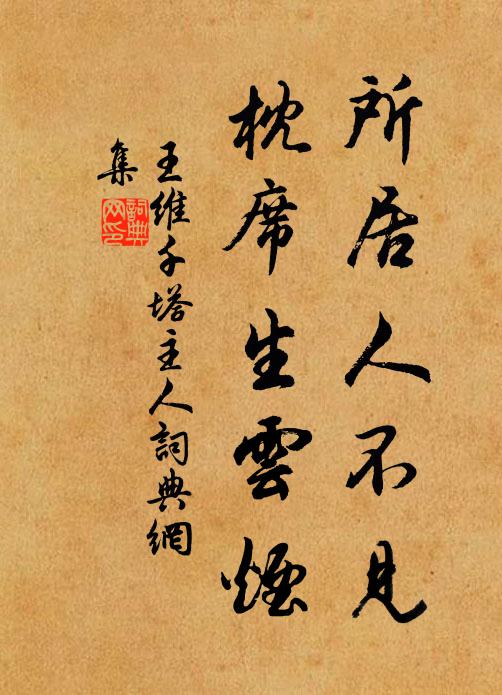 所居人不見
枕席生雲煙
王維千塔主人詞典網
集
詞典
網印